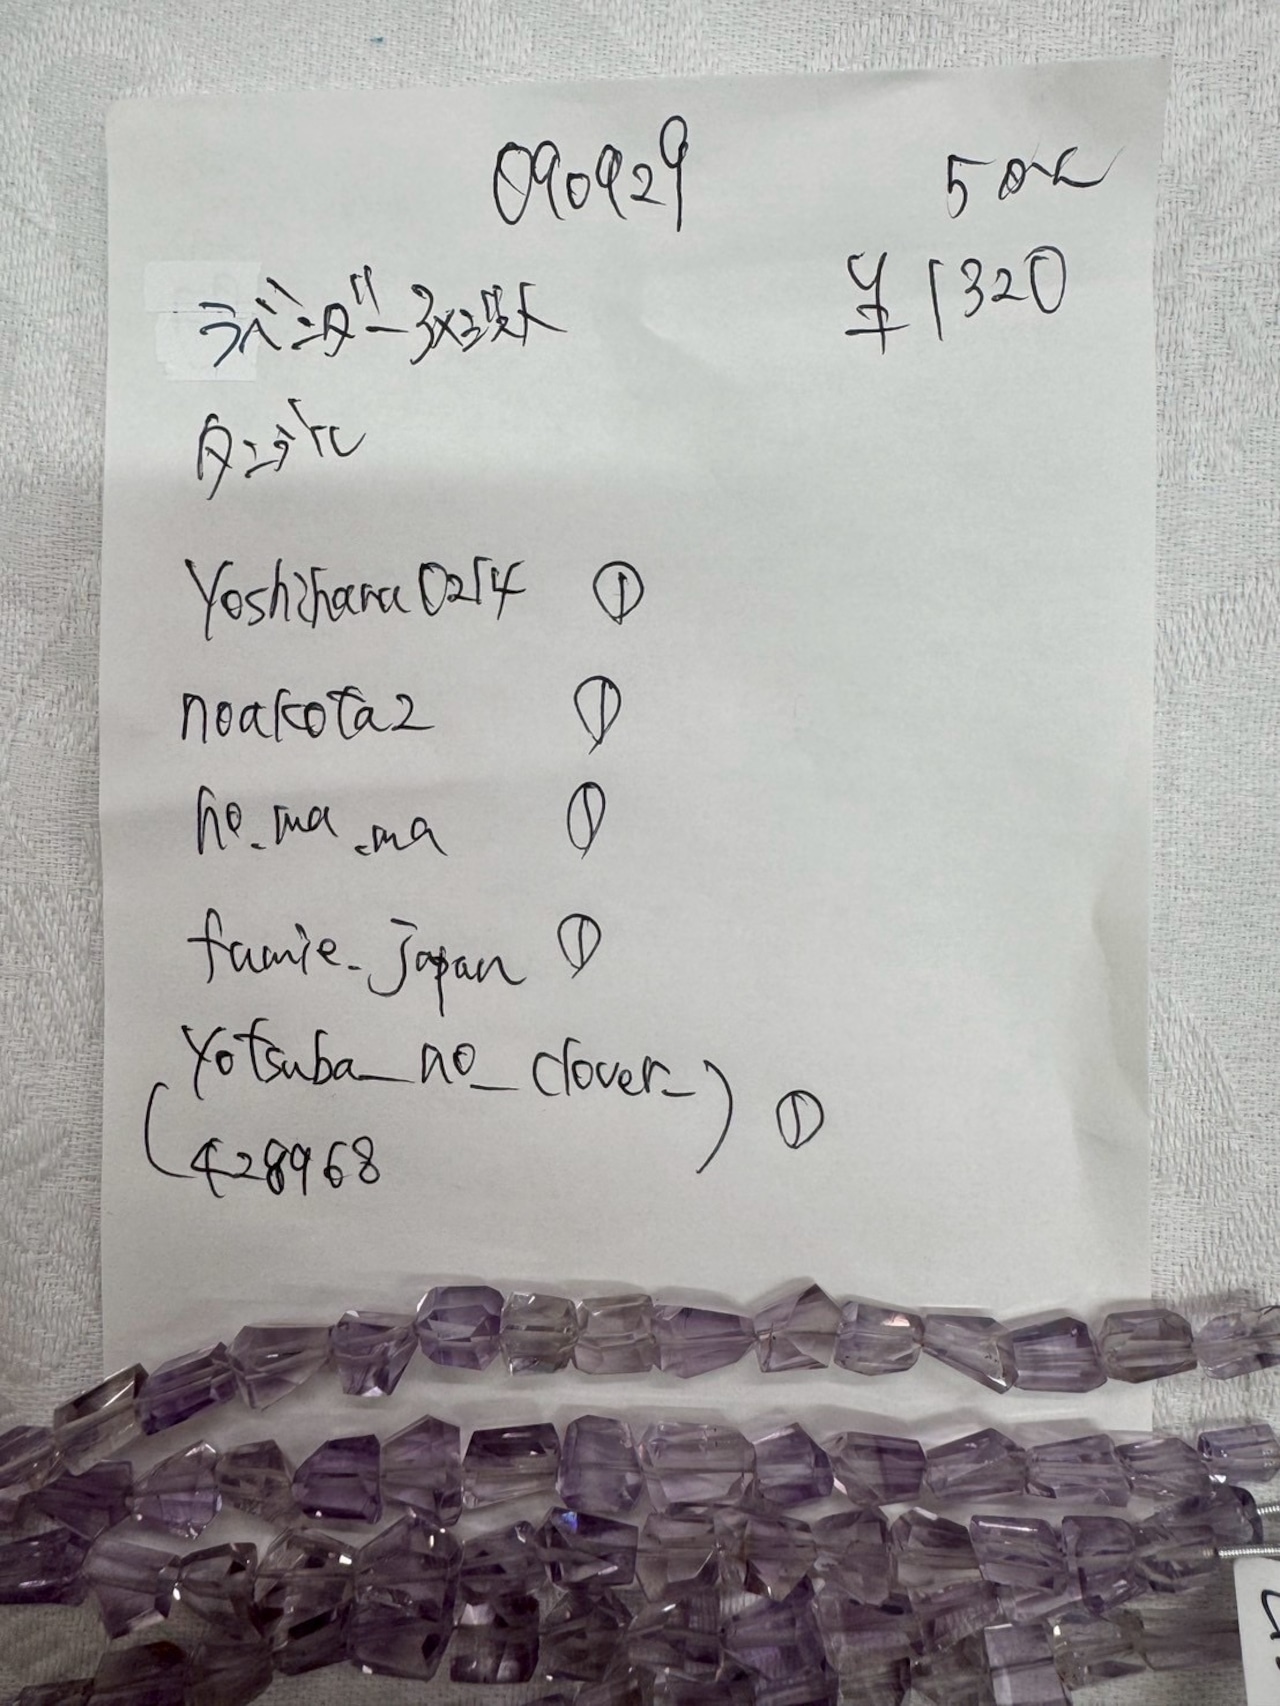 090929 5本
¥1320
ラベンダーｱﾒｼﾞｽﾄ
タンブル
Yoshihana0214 ①
noakota2 ①
ho_ma_ma ①
fumie_japan ①
(Yotsuba_no_clover_
428968) ①